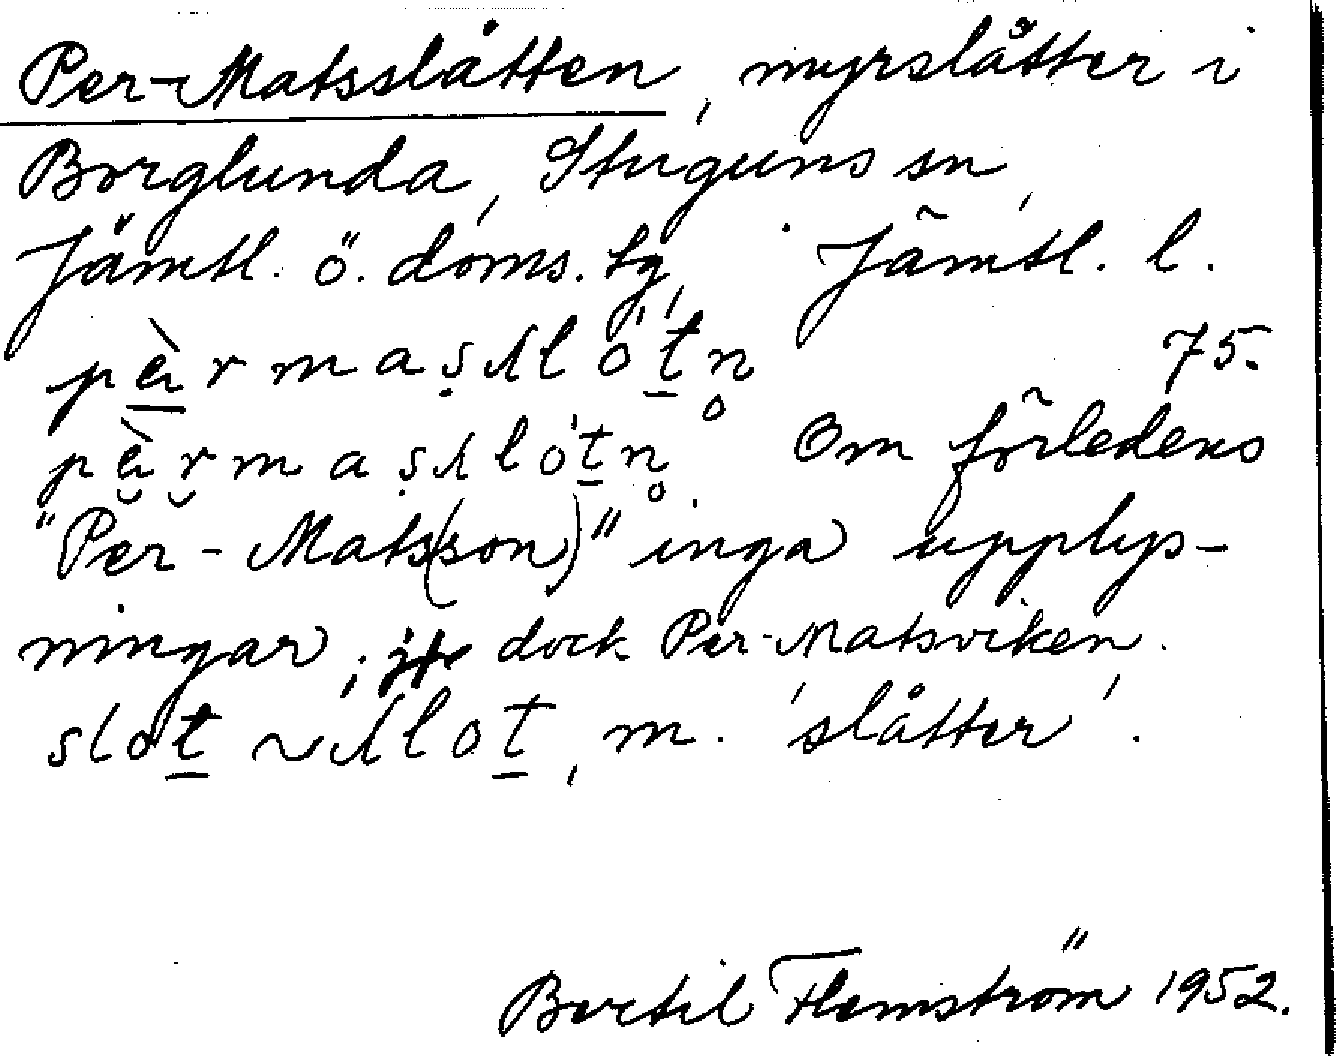 Per-Matsslåtten, myrslåtter i
Borglunda, Stuguns sn,
Jämtl. ö. doms. tg, Jämtl. l.
75.
Om förledens
"Per-Mats(son)" inga upplys-
ningar; dock Per-Matsviken.
m. 'slåtter'.
Bertil Flemström 1952.